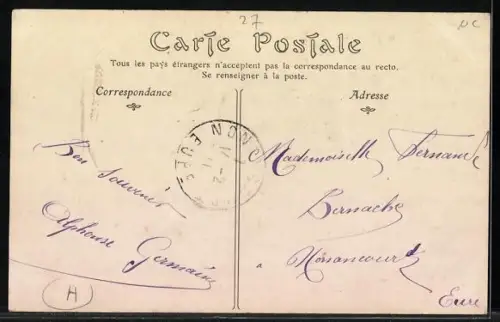 27
Carte Postale
Tous les pays étrangers n'acceptent pas la correspondance au recto.
Se renseigner à la poste.
Correspondance
Adresse
Bon Souvenir
Alphonse Germain
Mademoiselle
Eure
H